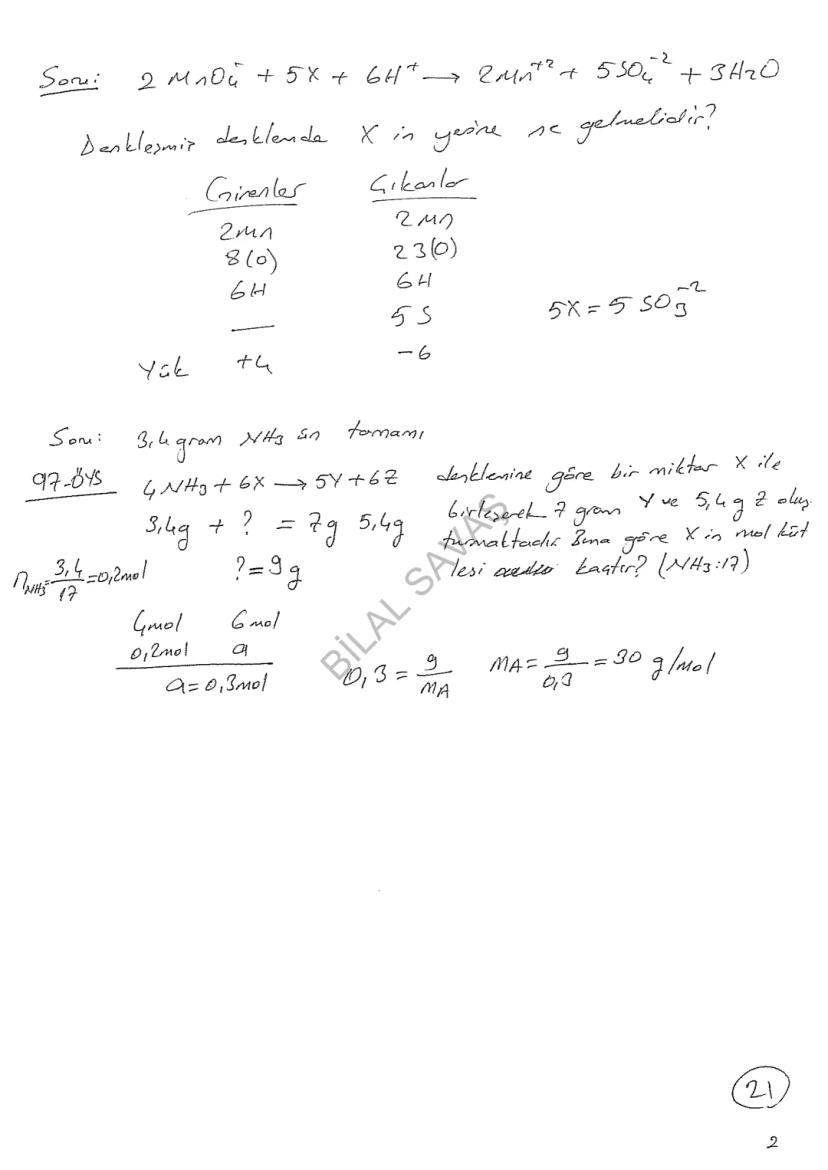 Soru: 2 MnO₄⁻ + 5X + 6H⁺ → 2Mn⁺² + 5SO₄⁻² + 3H₂O
Denkleşmiş denklemde X in yerine ne gelmelidir?
Girenler Çıkanlar
2Mn 2Mn
8(O) 23(O)
6H 6H
— 5S 5X = 5 SO₃⁻²
Yük +4 -6
Soru: 3,4 gram NH₃ ün tamamı
97-ÖYS 4NH₃ + 6X → 5Y + 6Z denklemine göre bir miktar X ile
3,4g + ? = 7g 5,4g birleşerek 7 gram Y ve 5,4 g Z oluş
turmaktadır. Buna göre X in mol küt
n NH₃ = 3,4/17 = 0,2mol ? = 9g lesi kaçtır? (NH₃:17)
4mol 6mol
0,2mol a
a = 0,3mol 0,3 = 9/MA MA = 9/0,3 = 30 g/mol
BİLAL SAVAŞ
21
2